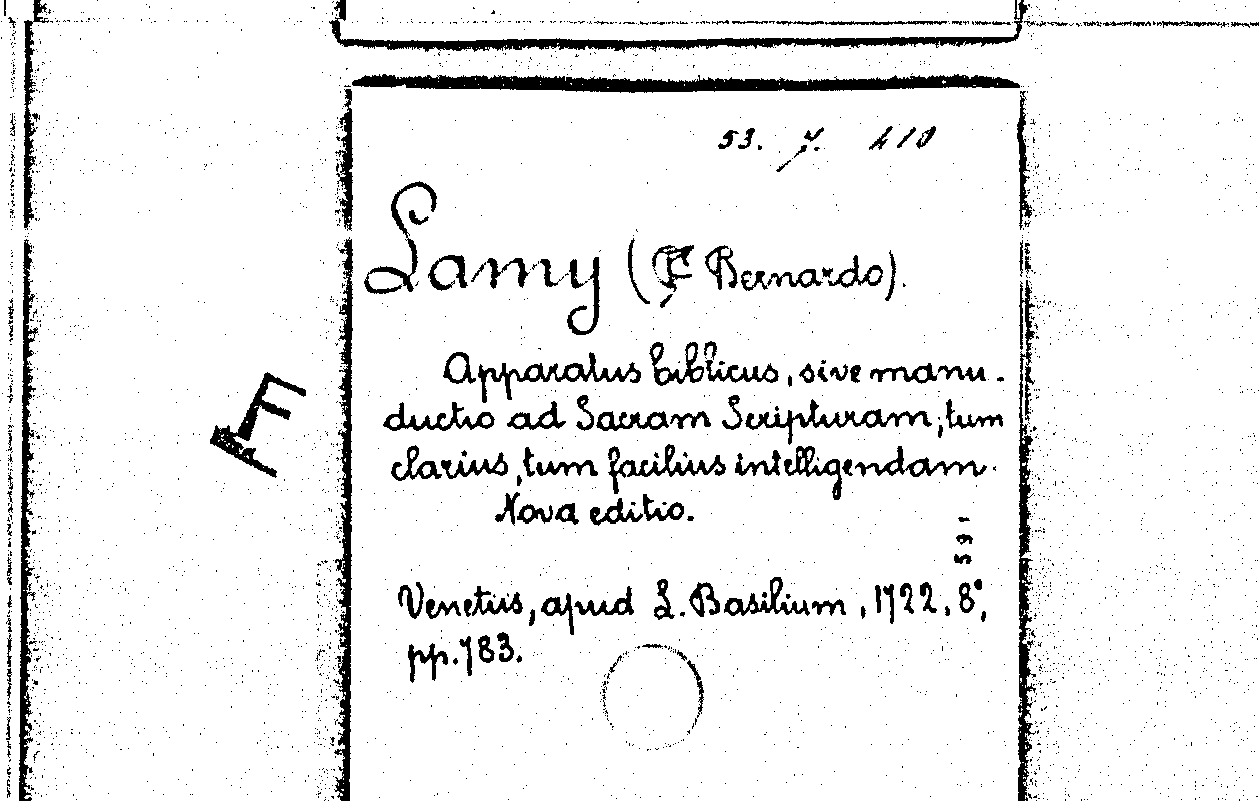 53. 7. 410
Lamy (P. Bernardo).
Apparatus biblicus, sive manu-
ductio ad Sacram Scripturam, tum
clarius, tum facilius intelligendam.
Nova editio.
591
Venetiis, apud L. Basilium, 1722, 8°,
pp. 783.
F